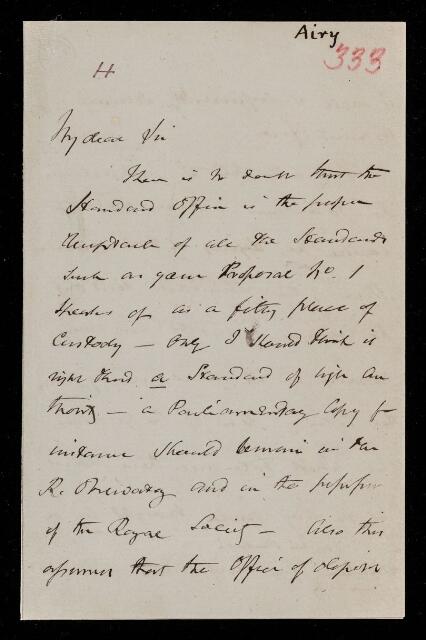 Airy
333
H
My dear Sir
There is no doubt that the
Standard Office is the proper
Receptacle of all the Standards
such as your Proposal No. 1
speaks of as a fitty place of
Custody — only I should think it
right that a Standard of high au
thority — a Parliamentary Copy for
instance should remain in the
R. Observatory and in the
of the Royal Society — Also this
assumes that the Office of deposit